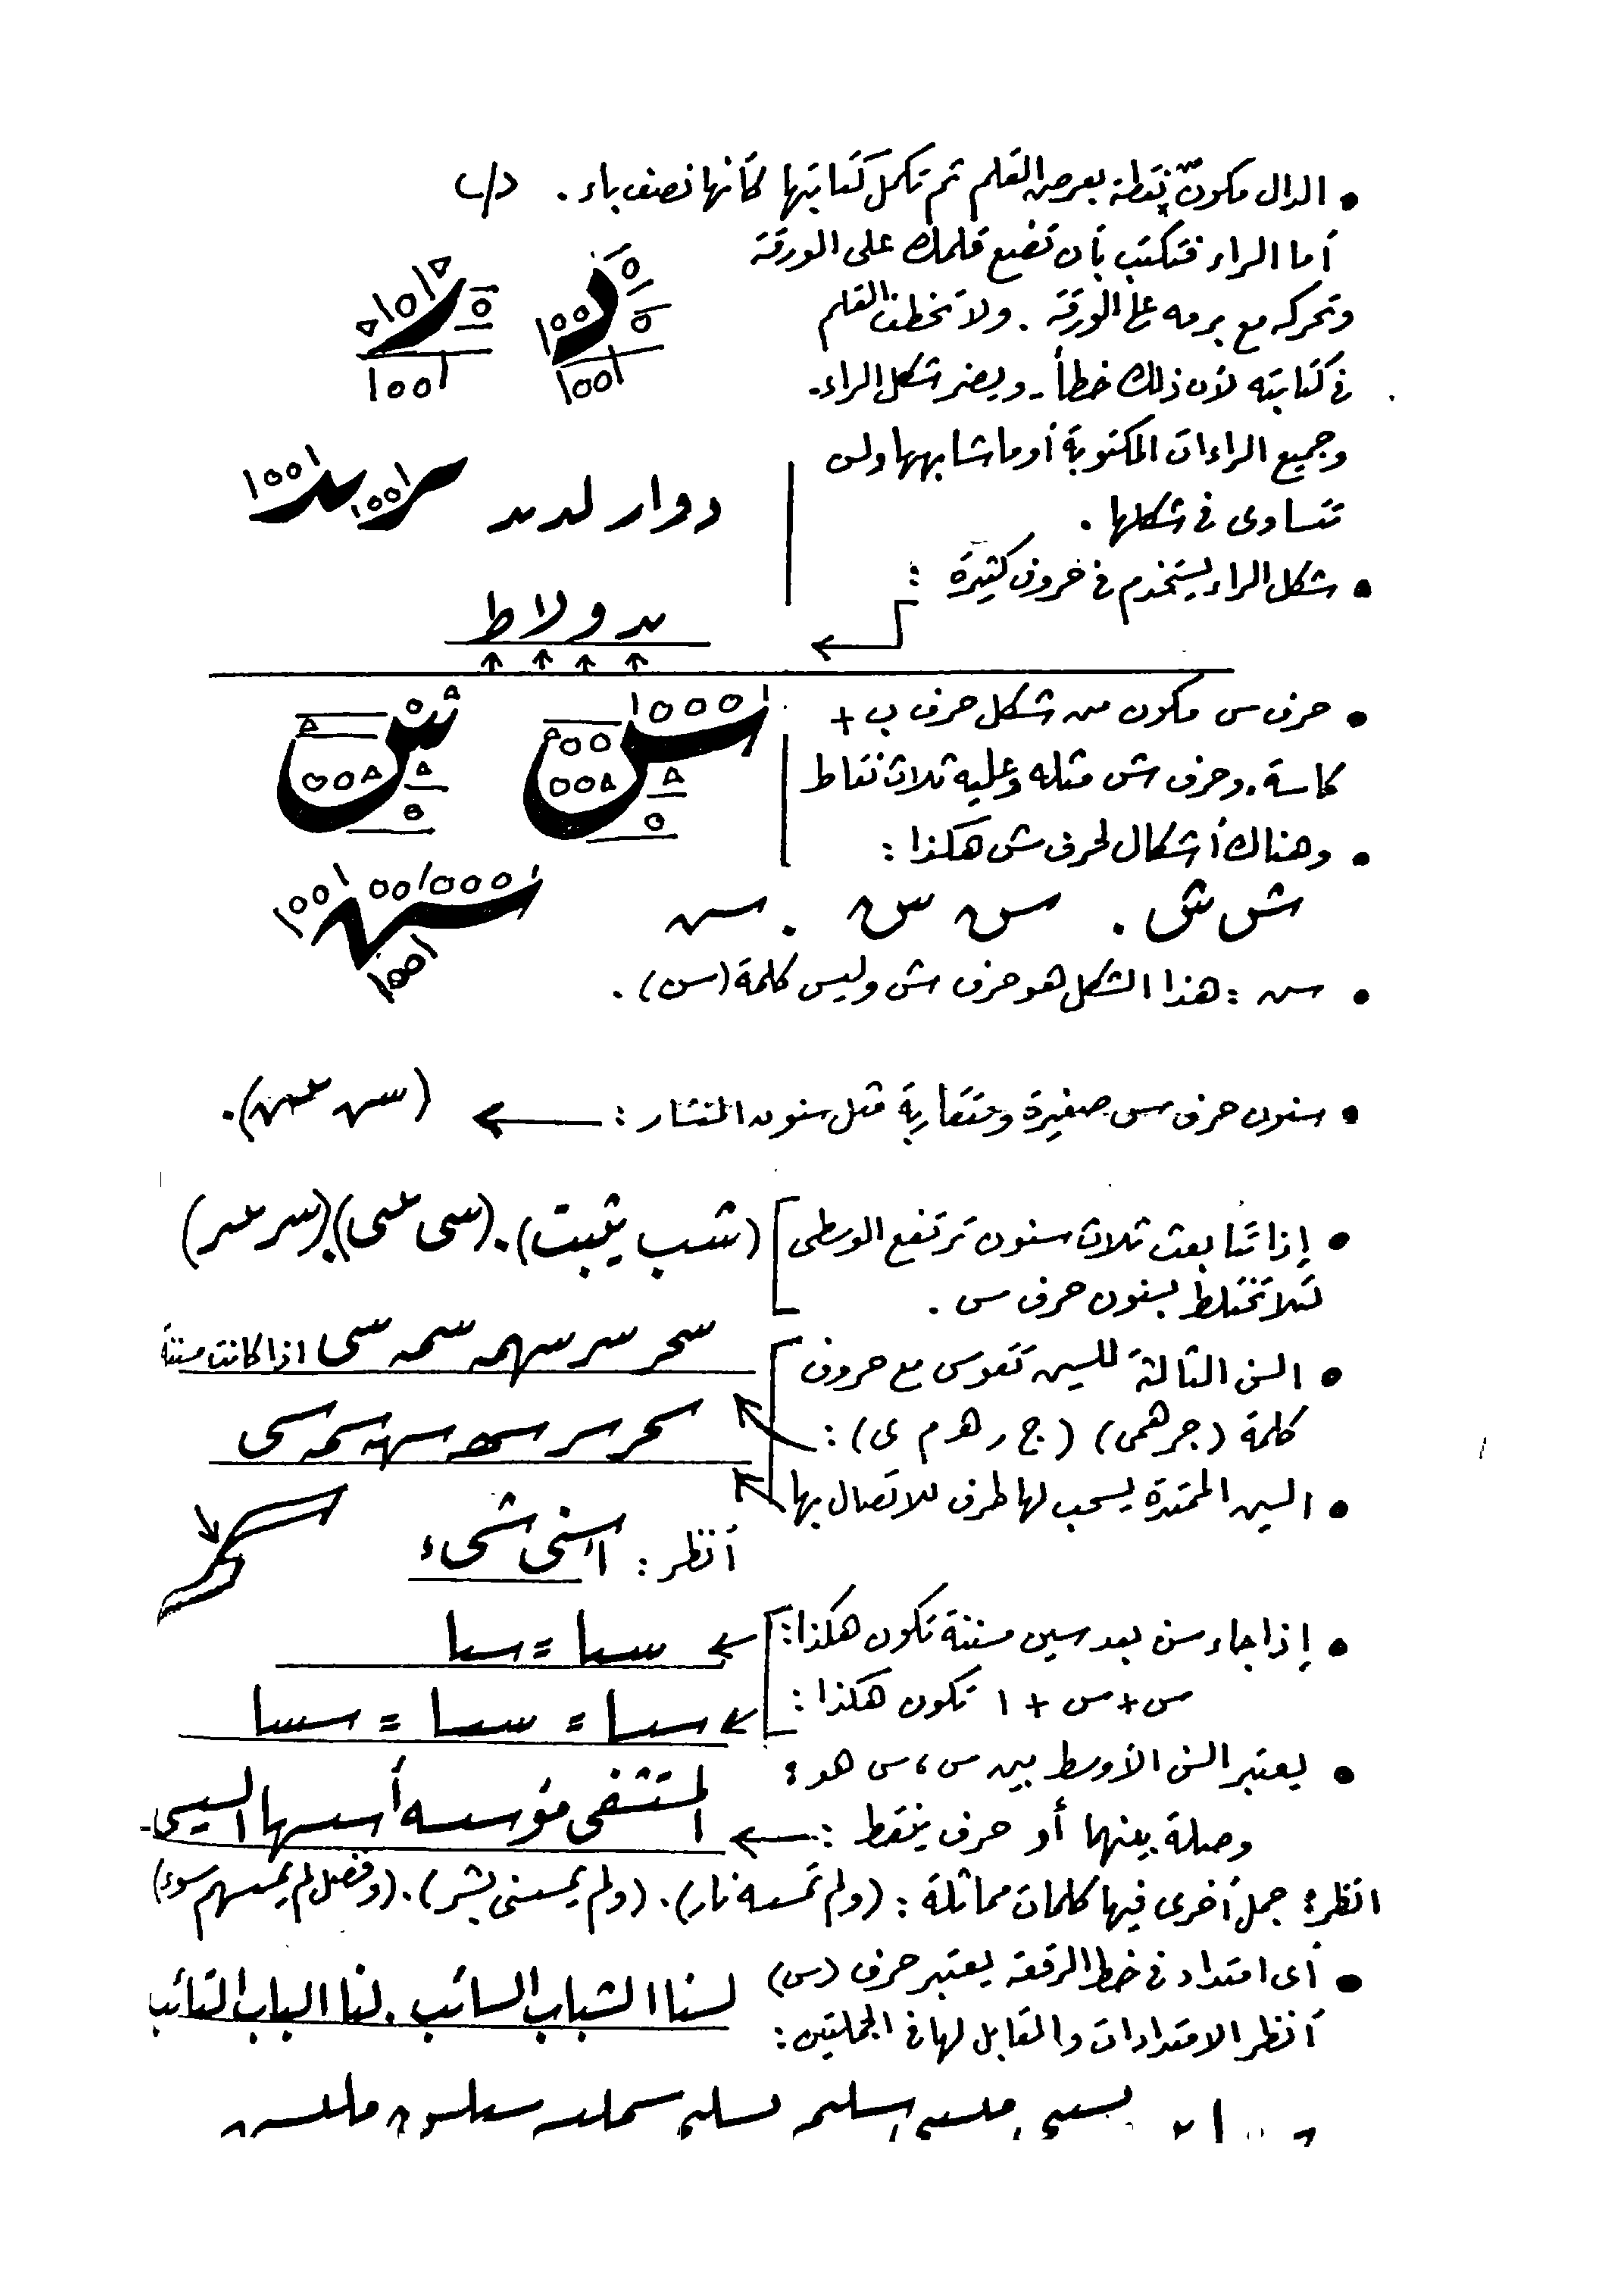 • الدال مكونة من نقطة بعرض القلم ثم تكمل كتابتها كأنها نصف باء . د/ب
أما الراء فتكتب بأن تضع قلمك على الورقة
وتحركه مع برمه على الورقة . ولا تخطف القلم
في كتابته لأن ذلك خطأ - ويضر شكل الراء .
وجميع الراءات المكتوبة أو ما شابهها
تتساوى في شكلها .
دوار لد
• شكل الراء يستخدم في حروف كثيرة :
و لا ط
• حرف س مكون من شكل حرف ب +
كاسة . وحرف ش مثله وعليه ثلاث نقاط
س ش
• وهناك أشكال لحرف ش هكذا :
ش ش . س س . س
• س : هذا الشكل هو حرف ش وليس كلمة (سن) .
• سنون حرف س صغيرة ومتقاربة مثل سنون المنشار : ←
• إذا تتابعت ثلاث سنون ترتفع الوسطى
لئلا تختلط بسنون حرف س .
(شب يثبت) . (سى سى) (سر سر)
• السن الثالثة للسين تقوس مع حروف
كلمة (جرهمى) (ج ر ه م ى) :
سحر سر سهمه سمه سى اذا كانت مسننة
سحر سر سمه سى
• السين الممتدة يسحب لها طرف للاتصال بها
أنظر : شىء
• إذا جاء سن بعد سين مسننة تكون هكذا : ←
س + س + ا تكون هكذا : ←
• يعتبر السن الأوسط بين س ، س هو :
وصلة بينهما أو حرف ينقط : ←
المستشفى مؤسسه أسسها السيسى
انظر : جمل أخرى فيها كلمات مماثلة : (ولم تمسسه نار) . (ولم يمسسنى بشر) . (وفضل لم يمسسهم سوء)
• أى امتداد فى خط الرقعة يعتبر حرف (س)
أنظر الامتدادات والمقابل لها فى الجملتين :
لسنا الشباب السائب . لنا الباب التائب